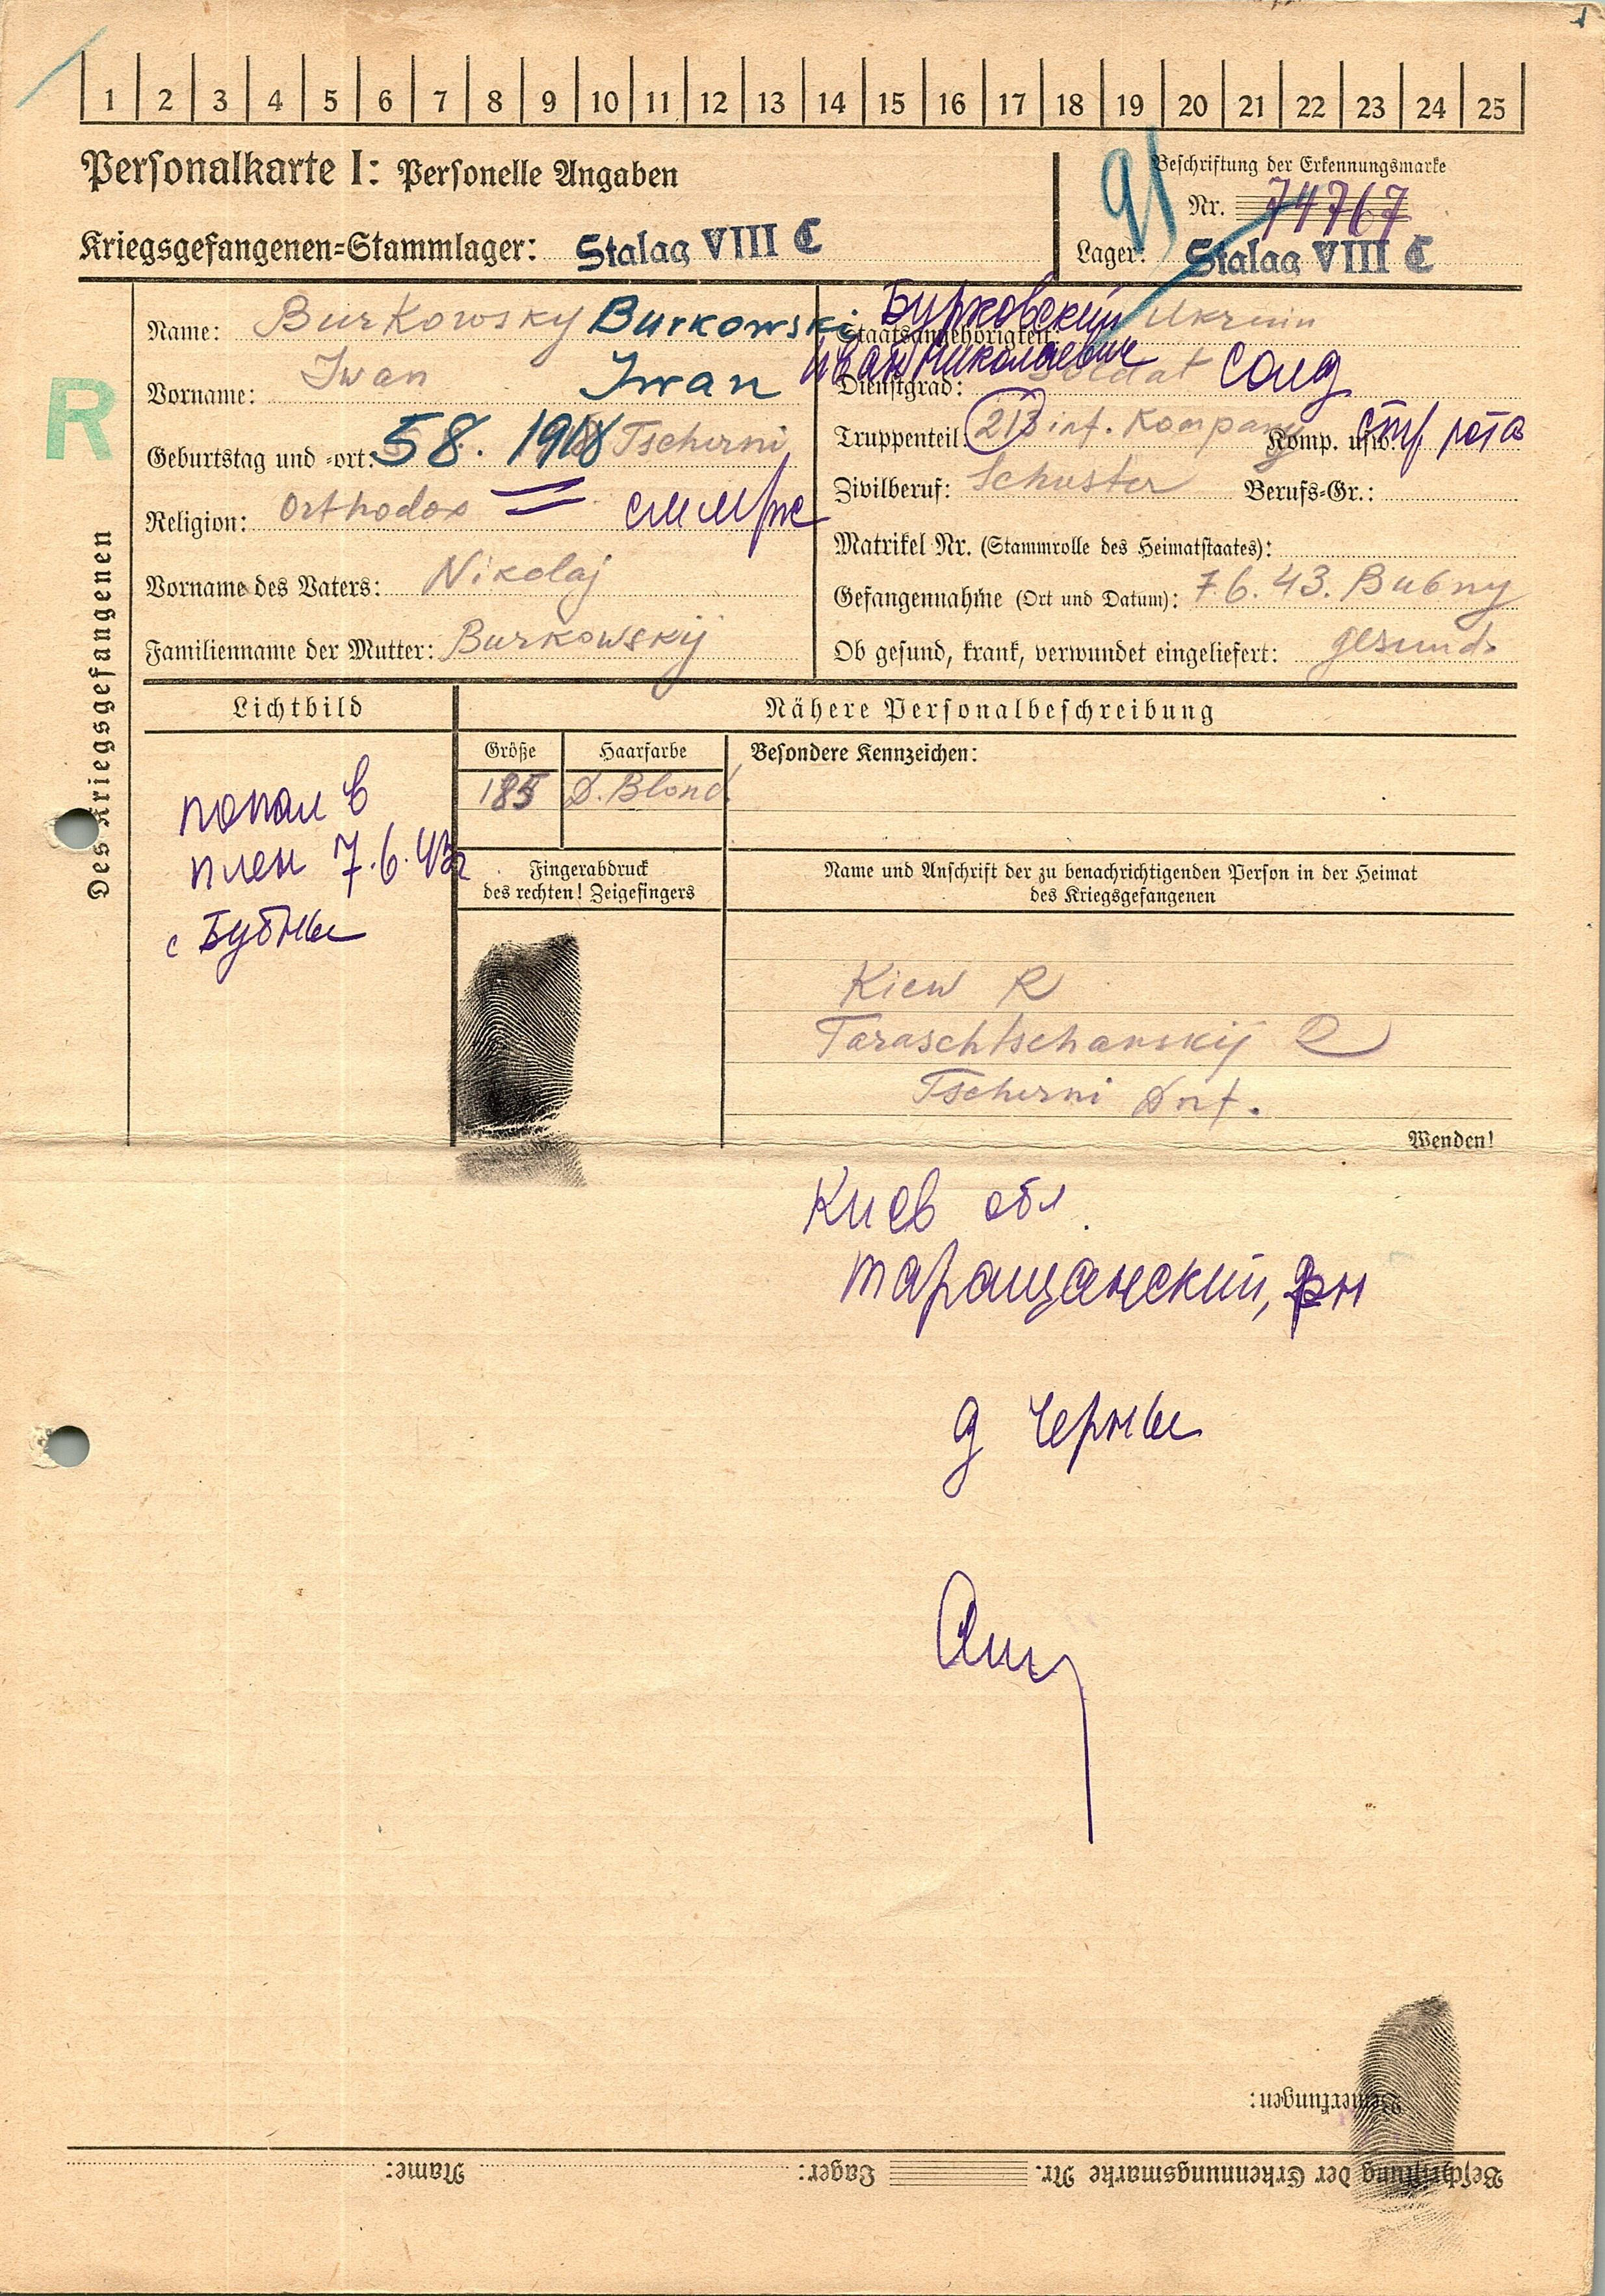 1
1 2 3 4 5 6 7 8 9 10 11 12 13 14 15 16 17 18 19 20 21 22 23 24 25
Personalkarte I: Personelle Angaben
Kriegsgefangenen=Stammlager: Stalag VIII C
91
Beschriftung der Erkennungsmarke
Nr. 74767
Lager: Stalag VIII C
R
Des Kriegsgefangenen
Name: Burkowsky Burkowski
Vorname: Iwan Iwan
Geburtstag und =ort: 5 8. 1918 Tscherni
Religion: Orthodox
Vorname des Vaters: Nikolaj
Familienname der Mutter: Burkowskij
Бурковский
Staatsangehörigkeit: Ukrain
Иван Николаевич
Dienstgrad: Soldat Солд
Truppenteil: 213 inf. Kompany Komp. usw.: стр рота
Zivilberuf: Schuster Berufs=Gr.:
Matrikel Nr. (Stammrolle des Heimatstaates):
Gefangennahme (Ort und Datum): 7.6.43. Bubny
Ob gesund, krank, verwundet eingeliefert: gesund.
Lichtbild
Nähere Personalbeschreibung
Größe Haarfarbe Besondere Kennzeichen:
185 D. Blond.
попал в
плен 7.6.43г
с Бубны
Fingerabdruck
des rechten! Zeigefingers
Name und Anschrift der zu benachrichtigenden Person in der Heimat
des Kriegsgefangenen
Kiew R
Taraschtschanskij R
Tscherni Dorf.
Wenden!
Киев обл.
Таращанский, рн
д Черны
Bemerkungen:
Beschriftung der Erkennungsmarke Nr. Lager: Name: